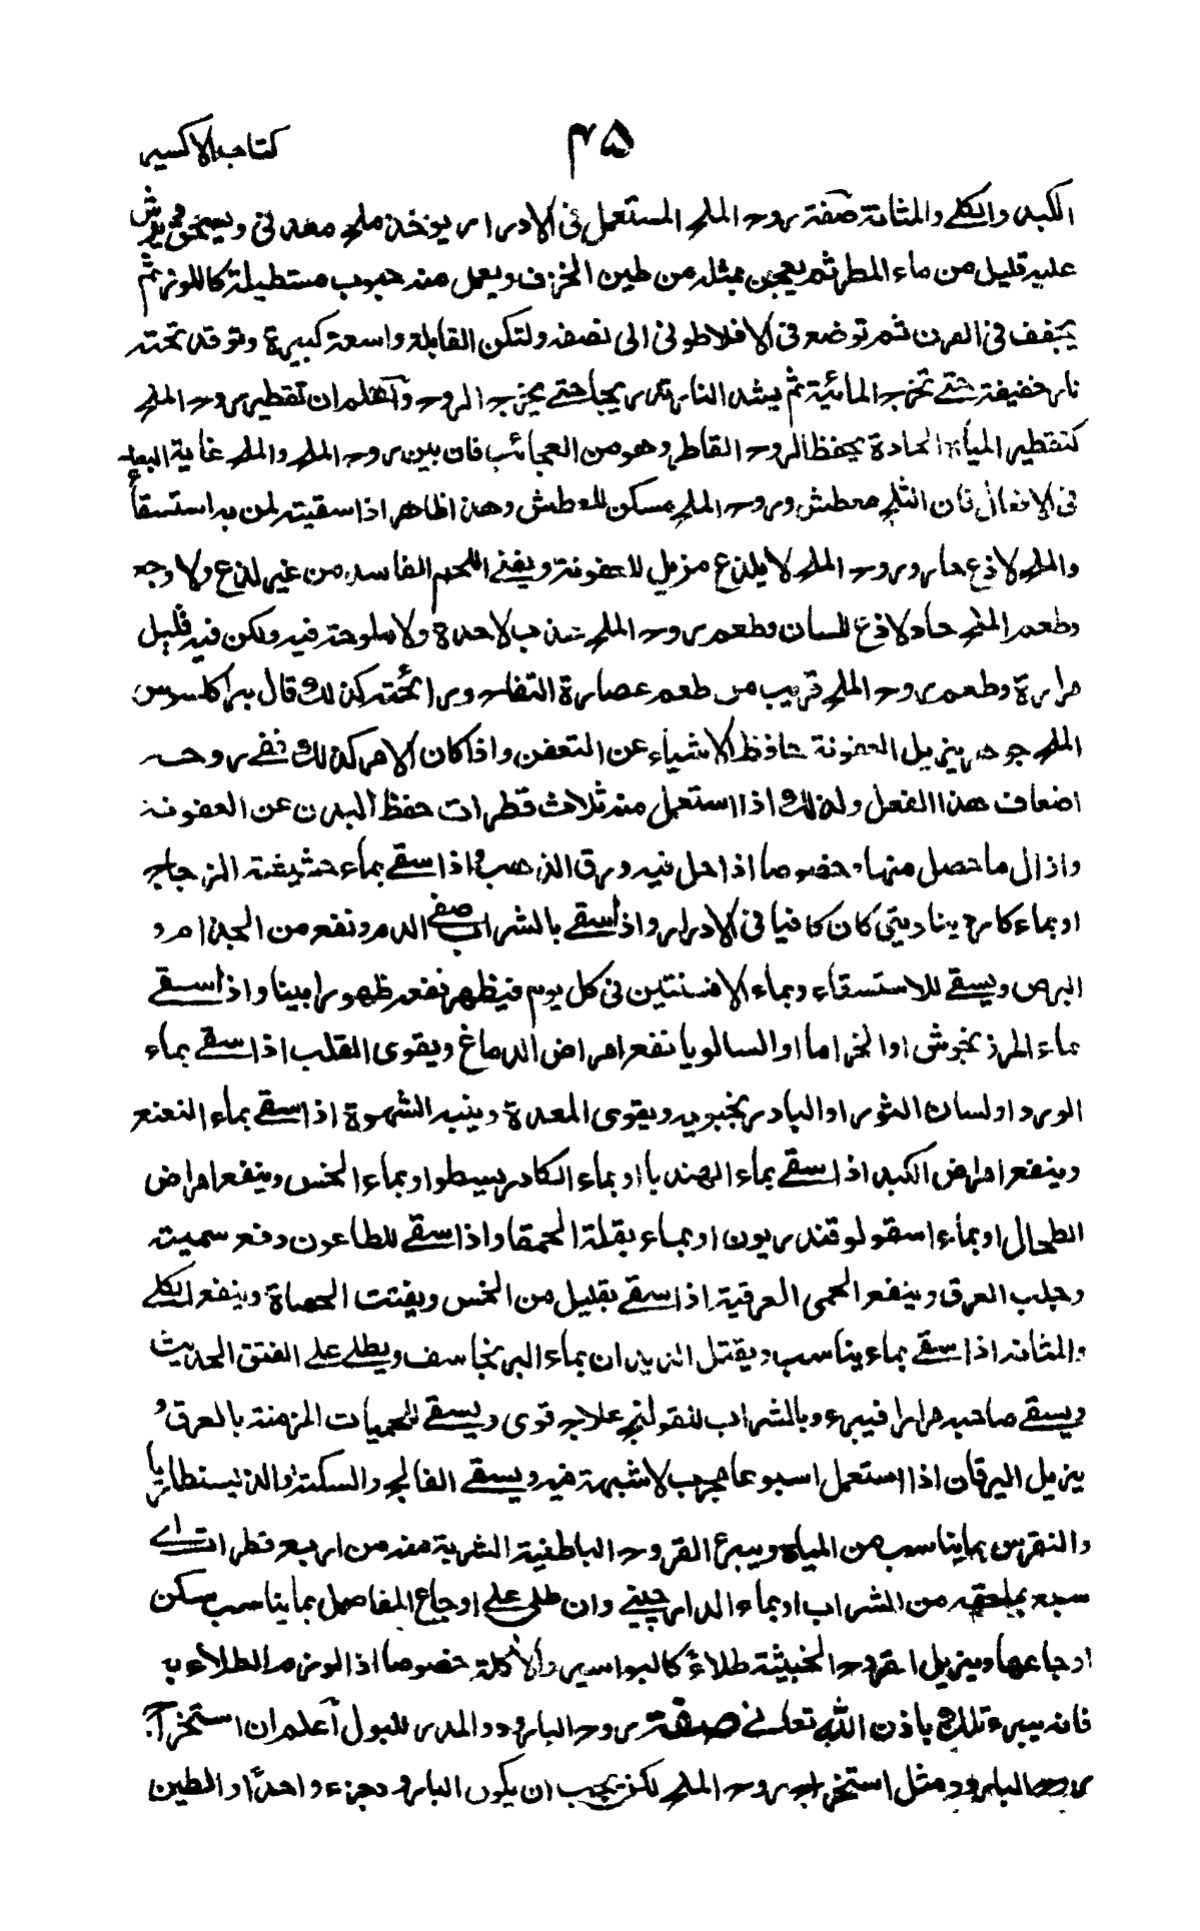 كتاب الاكسير
۴۵
الكبد والكلے والمثانة صفة روح الملح المستعمل فى الادرار يوخذ ملح معدنى ويسحق ويرش
عليه قليل من ماء المطر ثم يعجن بمثله من طين الخزف ويعمل منه حبوب مستطيلة كاللوز ثم
يجفف فى الفرن ثم توضع فى الافلاطونى الى نصفه ولتكن القابلة واسعة كبيرة وتوقد تحته
نار خفيفة حتے تخرج المائية ثم يشد النار تدريجا حتے يخرج الروح واعلم ان تقطير روح الملح
كتقطير المياه الحادة يحفظ الروح القاطر وهو من العجائب فان بين روح الملح والملح غاية البعد
فى الافعال فان الملح معطش وروح الملح مسكن للعطش وهذا ظاهر اذا سقيته لمن به استسقاء
والملح لاذع حار وروح الملح لا يلذع مزيل للعفونة ويفنے اللحم الفاسد من غير لذع ولا وجع
وطعم الملح حاد لاذع للسان وطعم روح الملح عذب لا حدة ولا ملوحة فيه ولكن فيه قليل
مرارة وطعم روح الملح قريب من طعم عصارة التفاح ورائحته كذلك قال براكلسوس
الملح جوهر يزيل العفونة حافظ الاشياء عن التعفن واذا كان الامر كذلك ففے روحه
اضعاف هذا الفعل ولذلك اذا استعمل منه ثلاث قطرات حفظ البدن عن العفونة
واذال ما حصل منها وخصوصا اذا حل فيه ورق الذهب واذا سقے بماء حشيشة الزجاج
او بماء كارح ينا ديتى كان كافيا فى الادرار واذا سقے بالشراب صفے الدم ونفع من الجذام و
البرص ويسقے للاستسقاء وبماء الافسنتين فى كل يوم فيظهر نفعه ظهورا مبينا واذا سقے
بماء المرزنجوش او الخزاما او السالويا نفع امراض الدماغ ويقوى القلب اذا سقے بماء
الورد او لسان الثور او البادرنجبويه ويقوى المعدة وينبه الشهوة اذا سقے بماء النعنع
وينفع امراض الكبد اذا سقے بماء الهندبا او بماء الكادريسطو او بماء الخس وينفع امراض
الطحال او بماء اسقولوقندريون او بماء بقلة الحمقا واذا سقے للطاعون دفع سميته
وجلب العرق وينفع الحمى العرقية اذا سقے بقليل من الخس ويفتت الحصاة وينفع الكلے
والمثانه اذا سقے بماء يناسب ويقتل الديدان بماء البرنجاسف ويطلے علے الفتق الحديث
ويسقے صاحبه مرارا فيبرء وبالشراب للقولنج علاج قوى ويسقے للحميات المزمنة بالعرق و
يزيل اليرقان اذا استعمل اسبوعا مجرب لا شبهة فيه ويسقے الفالج والسكتة والذيسنطاريا
والنقرس بما يناسب من المياه ويبرئ القروح الباطنية الشربة منه من اربع قطرات الے
سبع بملعقه من الشراب او بماء الدارچينے وان طلى علے اوجاع المفاصل بما يناسب سكن
اوجاعها ويزيل القروح الخبيثة طلاءً كالبواسير والأكلة خصوصا اذا لوزم الطلاء به
فانه يبرء تلك باذن الله تعالے صفة روح البارود المدر للبول اعلم ان استخراج
روح البارود مثل استخراج روح الملح لكن يجب ان يكون البارود جزء واحدًا والطين